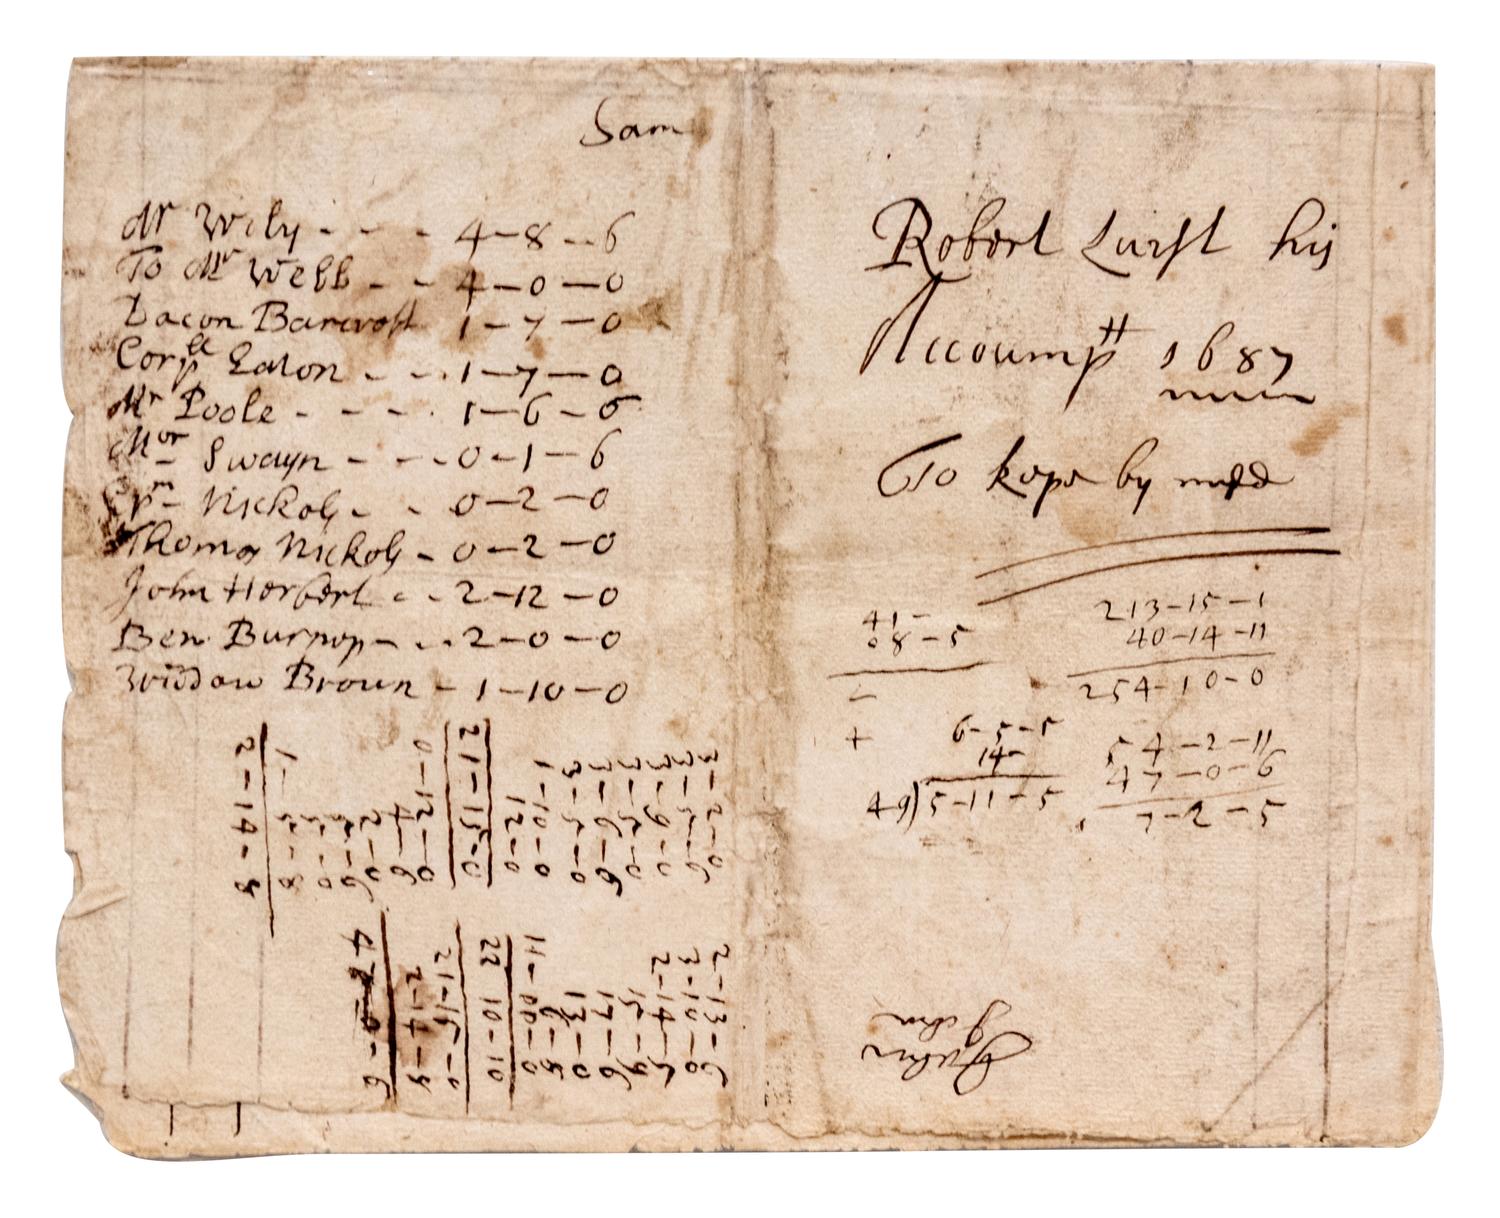 Sam
Mr Wily - - - 4-8-6
To Mr Webb - - 4-0-0
Dacon Barcroft 1-7-0
Corpll Eaton - - . 1-7-0
Mr Poole - - - . 1-6-6
Mor Swayn - - - 0-1-6
Nickols - . 0-2-0
Thomas Nickols - 0-2-0
John Herbert - . 2-12-0
Ben Burnop - . . 2-0-0
Widdow Broun - 1-10-0
3-2-0
3-5-6
3-9-0
3-5-0
3-6-6
3-5-0
1-10-0
12-0
21-15-0
0-12-0
4-6
2-0
1-5-8
2-14-8
2-13-6
3-10-0
2-14-5
15-9
17-6
13-0
11-00-0
22 10-10
21-15-0
2-14-8
Robert Lurst his
Accoumptt 1687
To kepe by
41-
08-5
213-15-1
40-14-11
254-10-0
+
6-5-5
14-
49)5-11-5
54-2-11
47-0-6
7-2-5
John
John